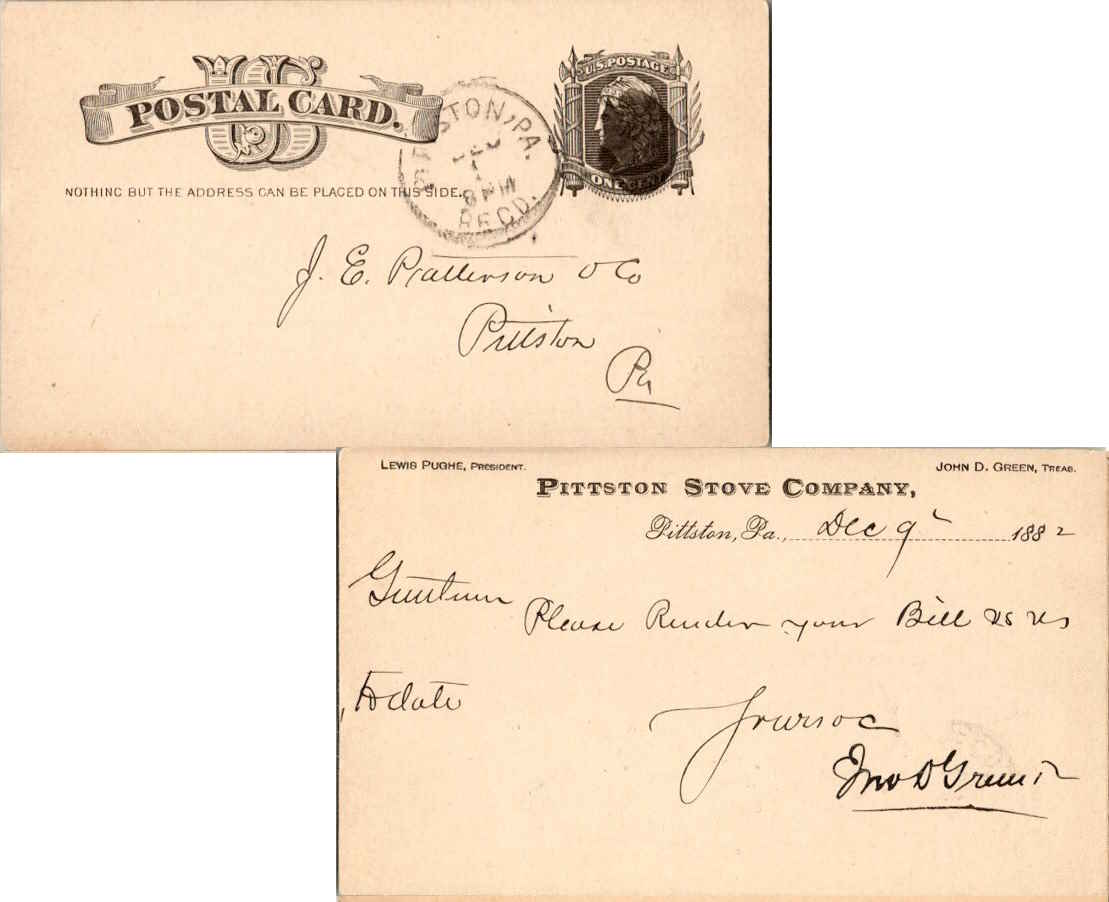 US
POSTAL CARD.
U.S. POSTAGE
ONE CENT
NOTHING BUT THE ADDRESS CAN BE PLACED ON THIS SIDE.
PITTSTON, PA.
DEC
8 PM
RECD.
J. E. Patterson & Co
Pittston
Pa
LEWIS PUGHE, PRESIDENT.
JOHN D. GREEN, TREAS.
PITTSTON STOVE COMPANY,
Pittston, Pa., Dec 9 1882
Gentlemen
Please Render your Bill vs us
to date
Yours &c
Jno D Green